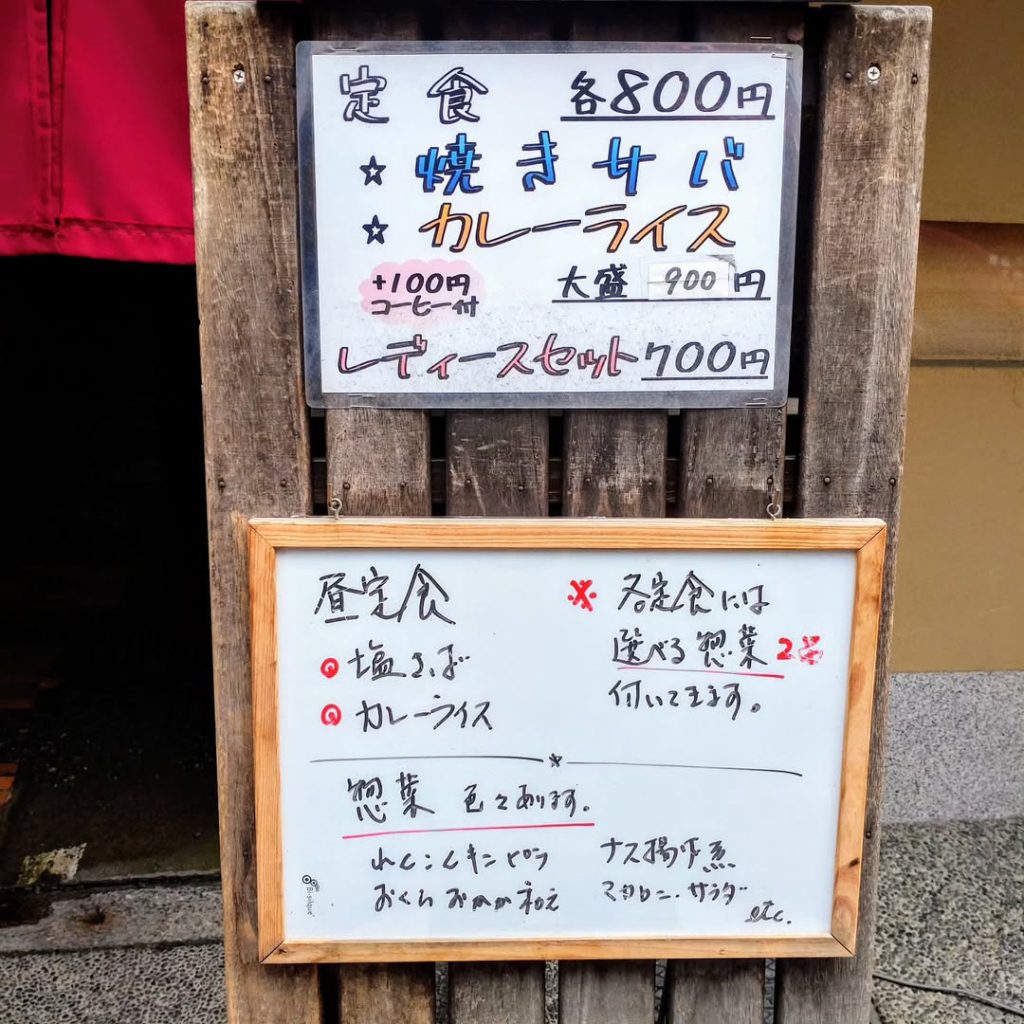 定食 各800円
☆ 焼きサバ
☆ カレーライス
+100円
コーヒー付
大盛 900円
レディースセット 700円
昼定食
塩さば
カレーライス
※ 各定食には
選べる惣菜2品
付いてきます。
惣菜 色々あります。
れんこんキンピラ
おくらおかか和え
ナス揚げ煮
マカロニ・サラダ
etc.